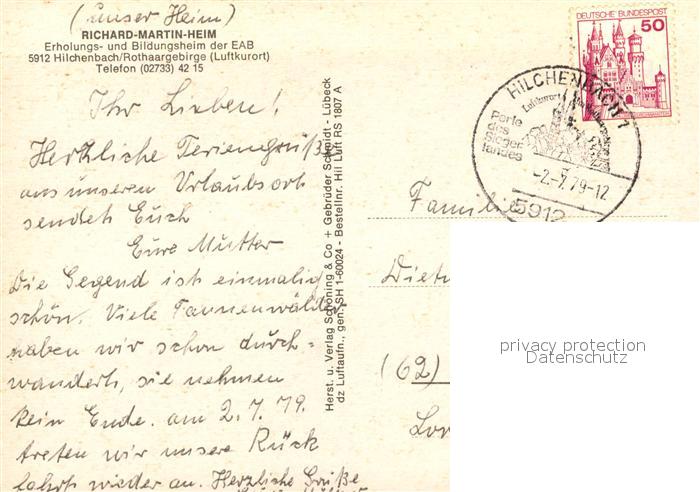 (Unser Heim)
RICHARD-MARTIN-HEIM
Erholungs- und Bildungsheim der EAB
5912 Hilchenbach/Rothaargebirge (Luftkurort)
Telefon (02733) 42 15
Ihr Lieben!
Herzliche Feriengrüße
aus unseren Urlaubsort
sendet Euch
Eure Mutter
Die Gegend ist einmalig
schön. Viele Tannenwälder
haben wir schon durch-
wandert, sie nehmen
kein Ende. am 2.7.79.
treten wir unsere Rück
fahrt wieder an. Herzliche Grüße
Herst. u. Verlag Schöning & Co + Gebrüder Schmidt - Lübeck
dz Luftaufn., gen. SH 1-60024 - Bestellnr. Hil Luft RS 1807 A
DEUTSCHE BUNDESPOST
50
HILCHENBACH 1
Luftkurort
Perle
des
Sieger
landes
-2.-7.79-12
5912
Familie
Diet
(62)
privacy protection
Datenschutz